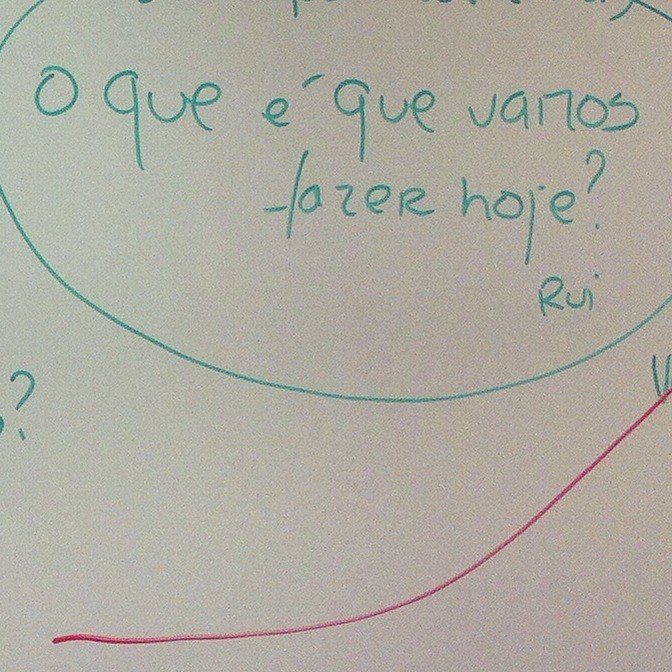 O que é que vamos
fazer hoje?
Rui
?